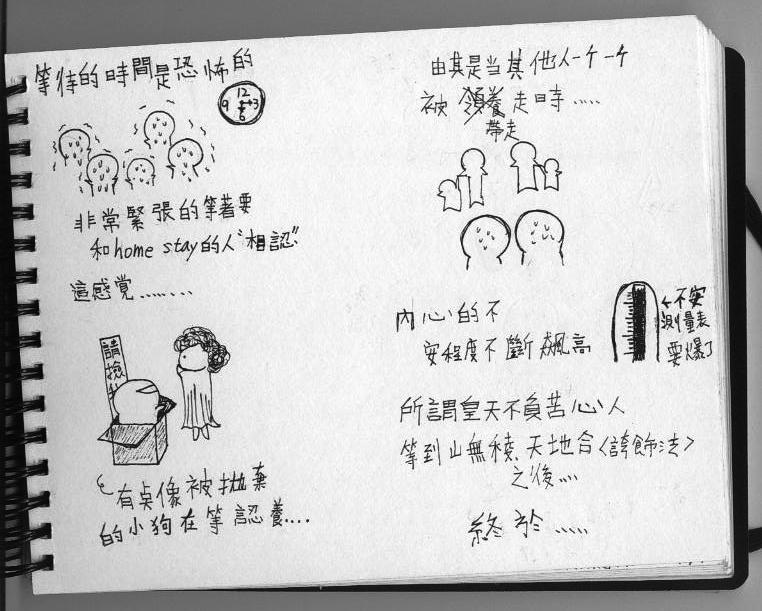 等待的時間是恐怖的
12
9 3
6
非常緊張的等著要
和home stay的人"相認"
這感覚........
請撿
ㄜ有点像被拋棄
的小狗在等認養....
由其是当其他人一ケ一ケ
被領養走時.....
帶走
內心的不
安程度不斷飆高
←不安
測量表
要爆了
所謂皇天不負苦心人
等到山無稜、天地合<誇飾法>
之後....
終於.....